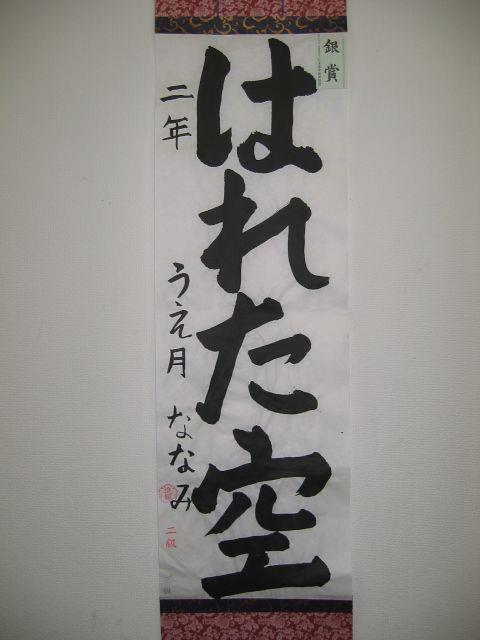 銀賞
はれた空
二年 うえ月 ななみ
二級